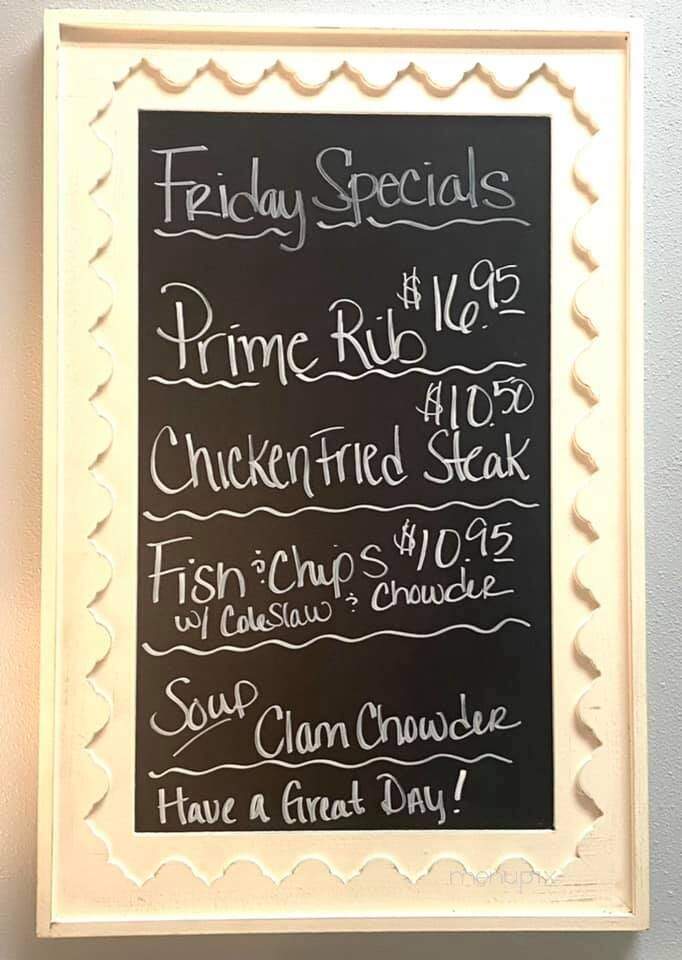 Friday Specials
Prime Rib $16.95
$10.50
Chicken Fried Steak
Fish & Chips $10.95
w/ Coleslaw & Chowder
Soup Clam Chowder
Have a Great Day!
menupix